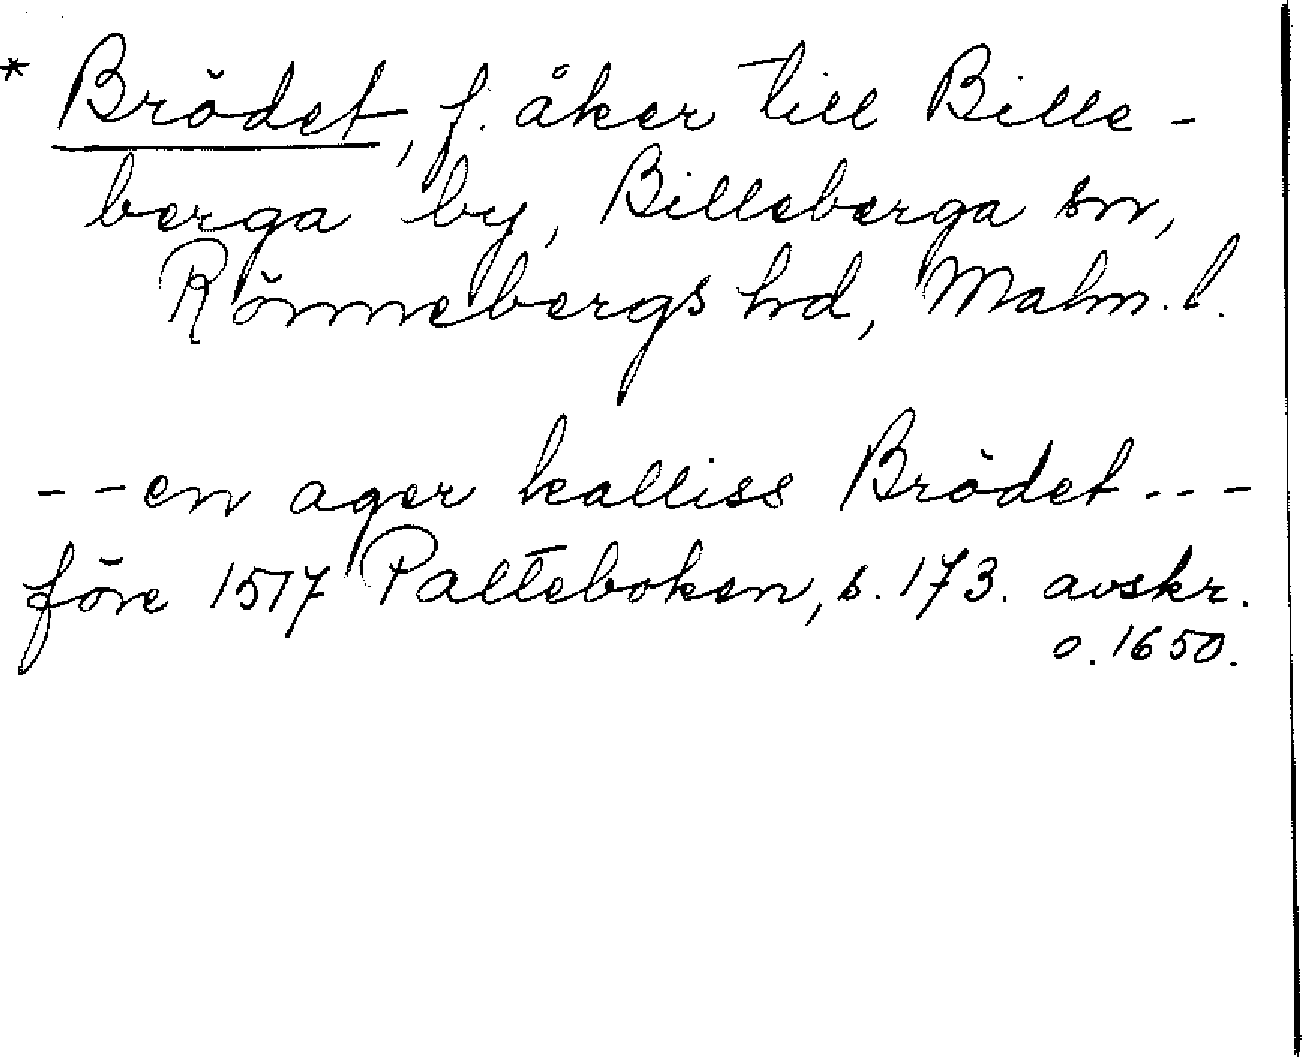 * Brödet, f. åker till Bille-
berga by, Billeberga sn,
Rönnebergs hd, Malm. l.
- - en ager kalliss Brödet - - -
före 1517 Palteboken, s. 173. avskr.
o. 1650.